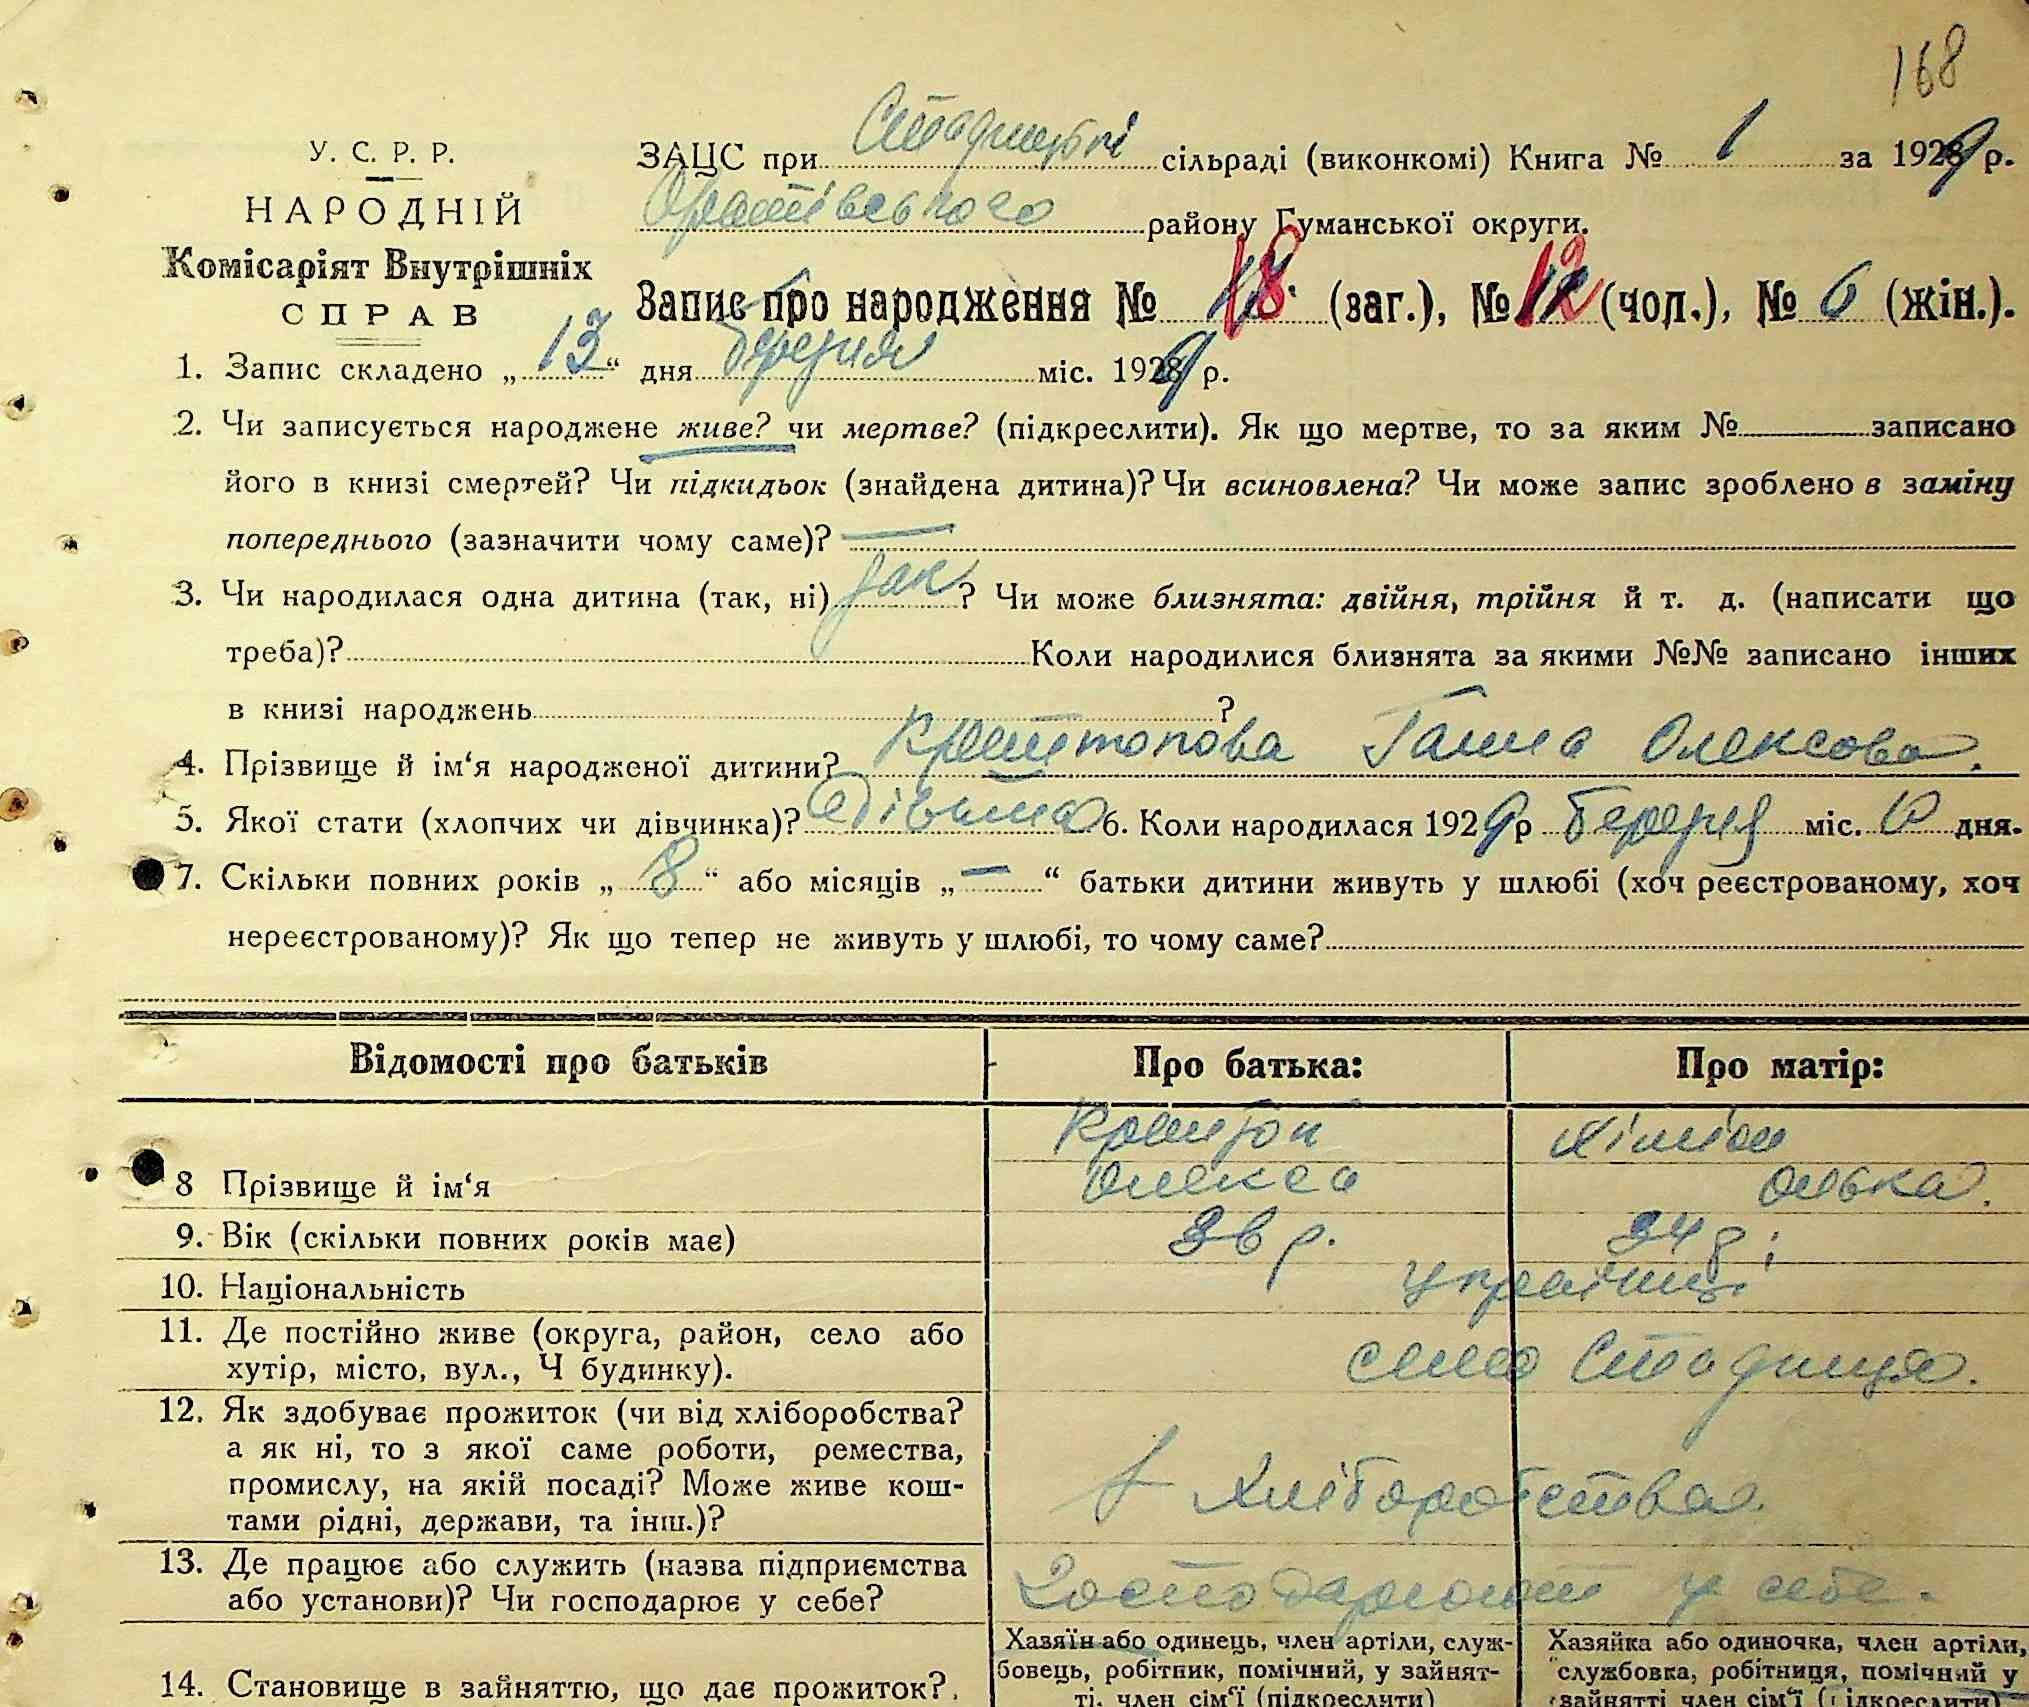 168
У. С. Р. Р.
НАРОДНІЙ
Комісаріят Внутрішніх
СПРАВ
ЗАЦС при Стадницькі сільраді (виконкомі) Книга № 1 за 1929 р.
Оратівського району Гуманської округи.
Запис про народження № 18 (заг.), № 12 (чол.), № 6 (жін.).
1. Запис складено „13“ дня березня міс. 1929 р.
2. Чи записується народжене живе? чи мертве? (підкреслити). Як що мертве, то за яким № записано
його в книзі смертей? Чи підкидьок (знайдена дитина)? Чи всиновлена? Чи може запис зроблено в заміну
попереднього (зазначити чому саме)? —
3. Чи народилася одна дитина (так, ні) так ? Чи може близнята: двійня, трійня й т. д. (написати що
треба)? Коли народилися близнята за якими №№ записано інших
в книзі народжень ?
4. Прізвище й ім‘я народженої дитини? Крештопова Ганна Олексова.
5. Якої стати (хлопчих чи дівчинка)? дівчина 6. Коли народилася 1929 р березня міс. 10 дня.
7. Скільки повних років „8“ або місяців „—“ батьки дитини живуть у шлюбі (хоч реєстрованому, хоч
нереєстрованому)? Як що тепер не живуть у шлюбі, то чому саме?
Відомості про батьків Про батька: Про матір:
8 Прізвище й ім‘я Крештоп Олекса Олька.
9. Вік (скільки повних років має) 36 р. 34 р.
10. Національність українці
11. Де постійно живе (округа, район, село або
хутір, місто, вул., Ч будинку). село Стадниця.
12. Як здобуває прожиток (чи від хліборобства?
а як ні, то з якої саме роботи, ремества,
промислу, на якій посаді? Може живе кош-
тами рідні, держави, та інш.)? з хліборобства.
13. Де працює або служить (назва підприємства
або установи)? Чи господарює у себе? Господарюют у себе.
14. Становище в зайняттю, що дає прожиток?
Хазяїн або одинець, член артіли, служ-
бовець, робітник, помічний, у зайнят-
ті, член сім‘ї (підкреслити)
Хазяйка або одиночка, член артіли,
службовка, робітниця, помічний у
зайнятті член сім‘ї (підкреслити)